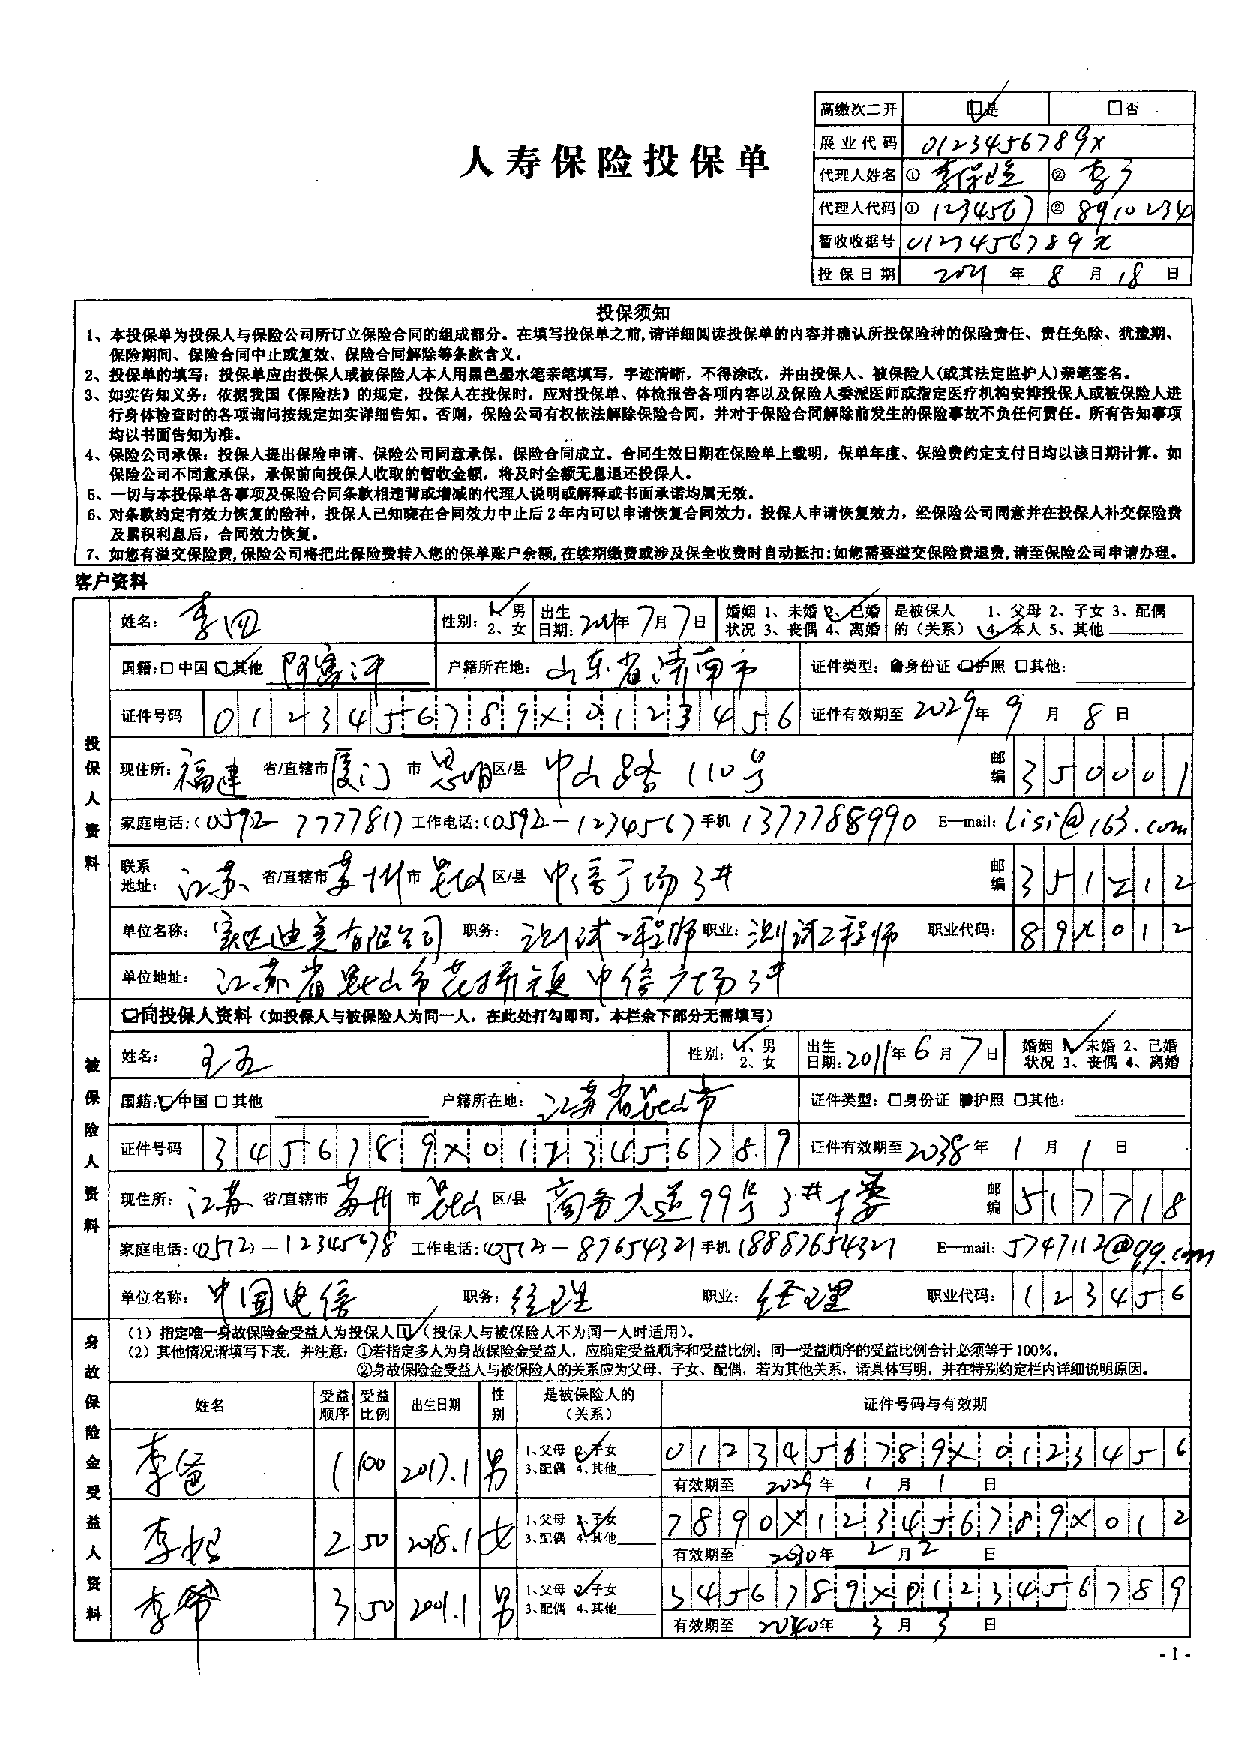 高缴次二开 □是 □否
人寿保险投保单
展业代码 0123456789X
代理人姓名 ① 李保险 ② 李子
代理人代码 ① 1234567 ② 8910234
暂收收据号 0123456789X
投保日期 2021 年 8 月 18 日
投保须知
1、本投保单为投保人与保险公司所订立保险合同的组成部分。在填写投保单之前,请详细阅读投保单的内容并确认所投保险种的保险责任、责任免除、犹豫期、
保险期间、保险合同中止或复效、保险合同解除等条款含义。
2、投保单的填写：投保单应由投保人或被保险人本人用黑色墨水笔亲笔填写，字迹清晰，不得涂改，并由投保人、被保险人(或其法定监护人)亲笔签名。
3、如实告知义务：依据我国《保险法》的规定，投保人在投保时，应对投保单、体检报告各项内容以及保险人委派医师或指定医疗机构安排投保人或被保险人进
行身体检查时的各项询问按规定如实详细告知。否则，保险公司有权依法解除保险合同，并对于保险合同解除前发生的保险事故不负任何责任。所有告知事项
均以书面告知为准。
4、保险公司承保：投保人提出保险申请、保险公司同意承保，保险合同成立。合同生效日期在保险单上载明，保单年度、保险费约定支付日均以该日期计算。如
保险公司不同意承保，承保前向投保人收取的暂收金额，将及时全额无息退还投保人。
5、一切与本投保单各事项及保险合同条款相违背或增减的代理人说明或解释或书面承诺均属无效。
6、对条款约定有效力恢复的险种，投保人已知晓在合同效力中止后2年内可以申请恢复合同效力。投保人申请恢复效力，经保险公司同意并在投保人补交保险费
及累积利息后，合同效力恢复。
7、如您有溢交保险费,保险公司将把此保险费转入您的保单账户余额,在续期缴费或涉及保全收费时自动抵扣;如您需要溢交保险费退费,请至保险公司申请办理。
客户资料
投保人资料
姓名： 李四 性别： 1、男 2、女 出生日期： 年7月7日 婚姻状况 1、未婚 2、已婚 3、丧偶 4、离婚 是被保人的（关系） 1、父母 2、子女 3、配偶 4、本人 5、其他
国籍:□中国 □其他 阿富汗 户籍所在地： 山东省济南市 证件类型： 身份证 □护照 □其他:
证件号码 0123456789X0123456 证件有效期至 2029 年 9 月 8 日
现住所： 福建 省/直辖市 厦门 市 思明 区/县 中山路110号 邮编 350001
家庭电话:(0592-7777781) 工作电话:(0592-1234567 手机 13777888990 E—mail: lisi@163.com
联系地址: 江苏 省/直辖市 苏州 市 昆山 区/县 中信广场3# 邮编 351212
单位名称： 有限公司 职务： 测试工程师 职业： 测试工程师 职业代码： 89X012
单位地址： 江苏省昆山市花桥镇中信广场3#
被保险人资料
□同投保人资料（如投保人与被保险人为同一人，在此处打勾即可，本栏余下部分无需填写）
姓名： 王五 性别： 1、男 2、女 出生日期: 2011年6月7日 婚姻状况 1、未婚 2、已婚 3、丧偶 4、离婚
国籍:□中国 □其他 户籍所在地： 江苏省昆山市 证件类型： □身份证 护照 □其他:
证件号码 3456789X0123456789 证件有效期至 2038 年 1 月 1 日
现住所： 江苏 省/直辖市 苏州 市 昆山 区/县 商务大道99号3#楼 邮编 517718
家庭电话:(0512)-12345678 工作电话:(0512)-87654321 手机 18887654321 E—mail: 5747112@qq.com
单位名称： 中国电信 职务： 经理 职业： 经理 职业代码： 123456
身故保险金受益人资料
（1）指定唯一身故保险金受益人为投保人□（投保人与被保险人不为同一人时适用）。
（2）其他情况请填写下表，并注意：①若指定多人为身故保险金受益人，应确定受益顺序和受益比例；同一受益顺序的受益比例合计必须等于100%。
②身故保险金受益人与被保险人的关系应为父母、子女、配偶，若为其他关系，请具体写明，并在特别约定栏内详细说明原因。
姓名 受益顺序 受益比例 出生日期 性别 是被保险人的（关系） 证件号码与有效期
李爸 1 100 2017.1 男 1、父母 2、子女 3、配偶 4、其他 0123456789X0123456
有效期至 2029 年 1 月 1 日
李妈 2 50 2018.1 女 1、父母 2、子女 3、配偶 4、其他 7890X123456789X012
有效期至 2030年 2 月 2 日
李爷 3 50 2001.1 男 1、父母 2、子女 3、配偶 4、其他 3456789X0123456789
有效期至 2040年 3 月 3 日
- 1 -